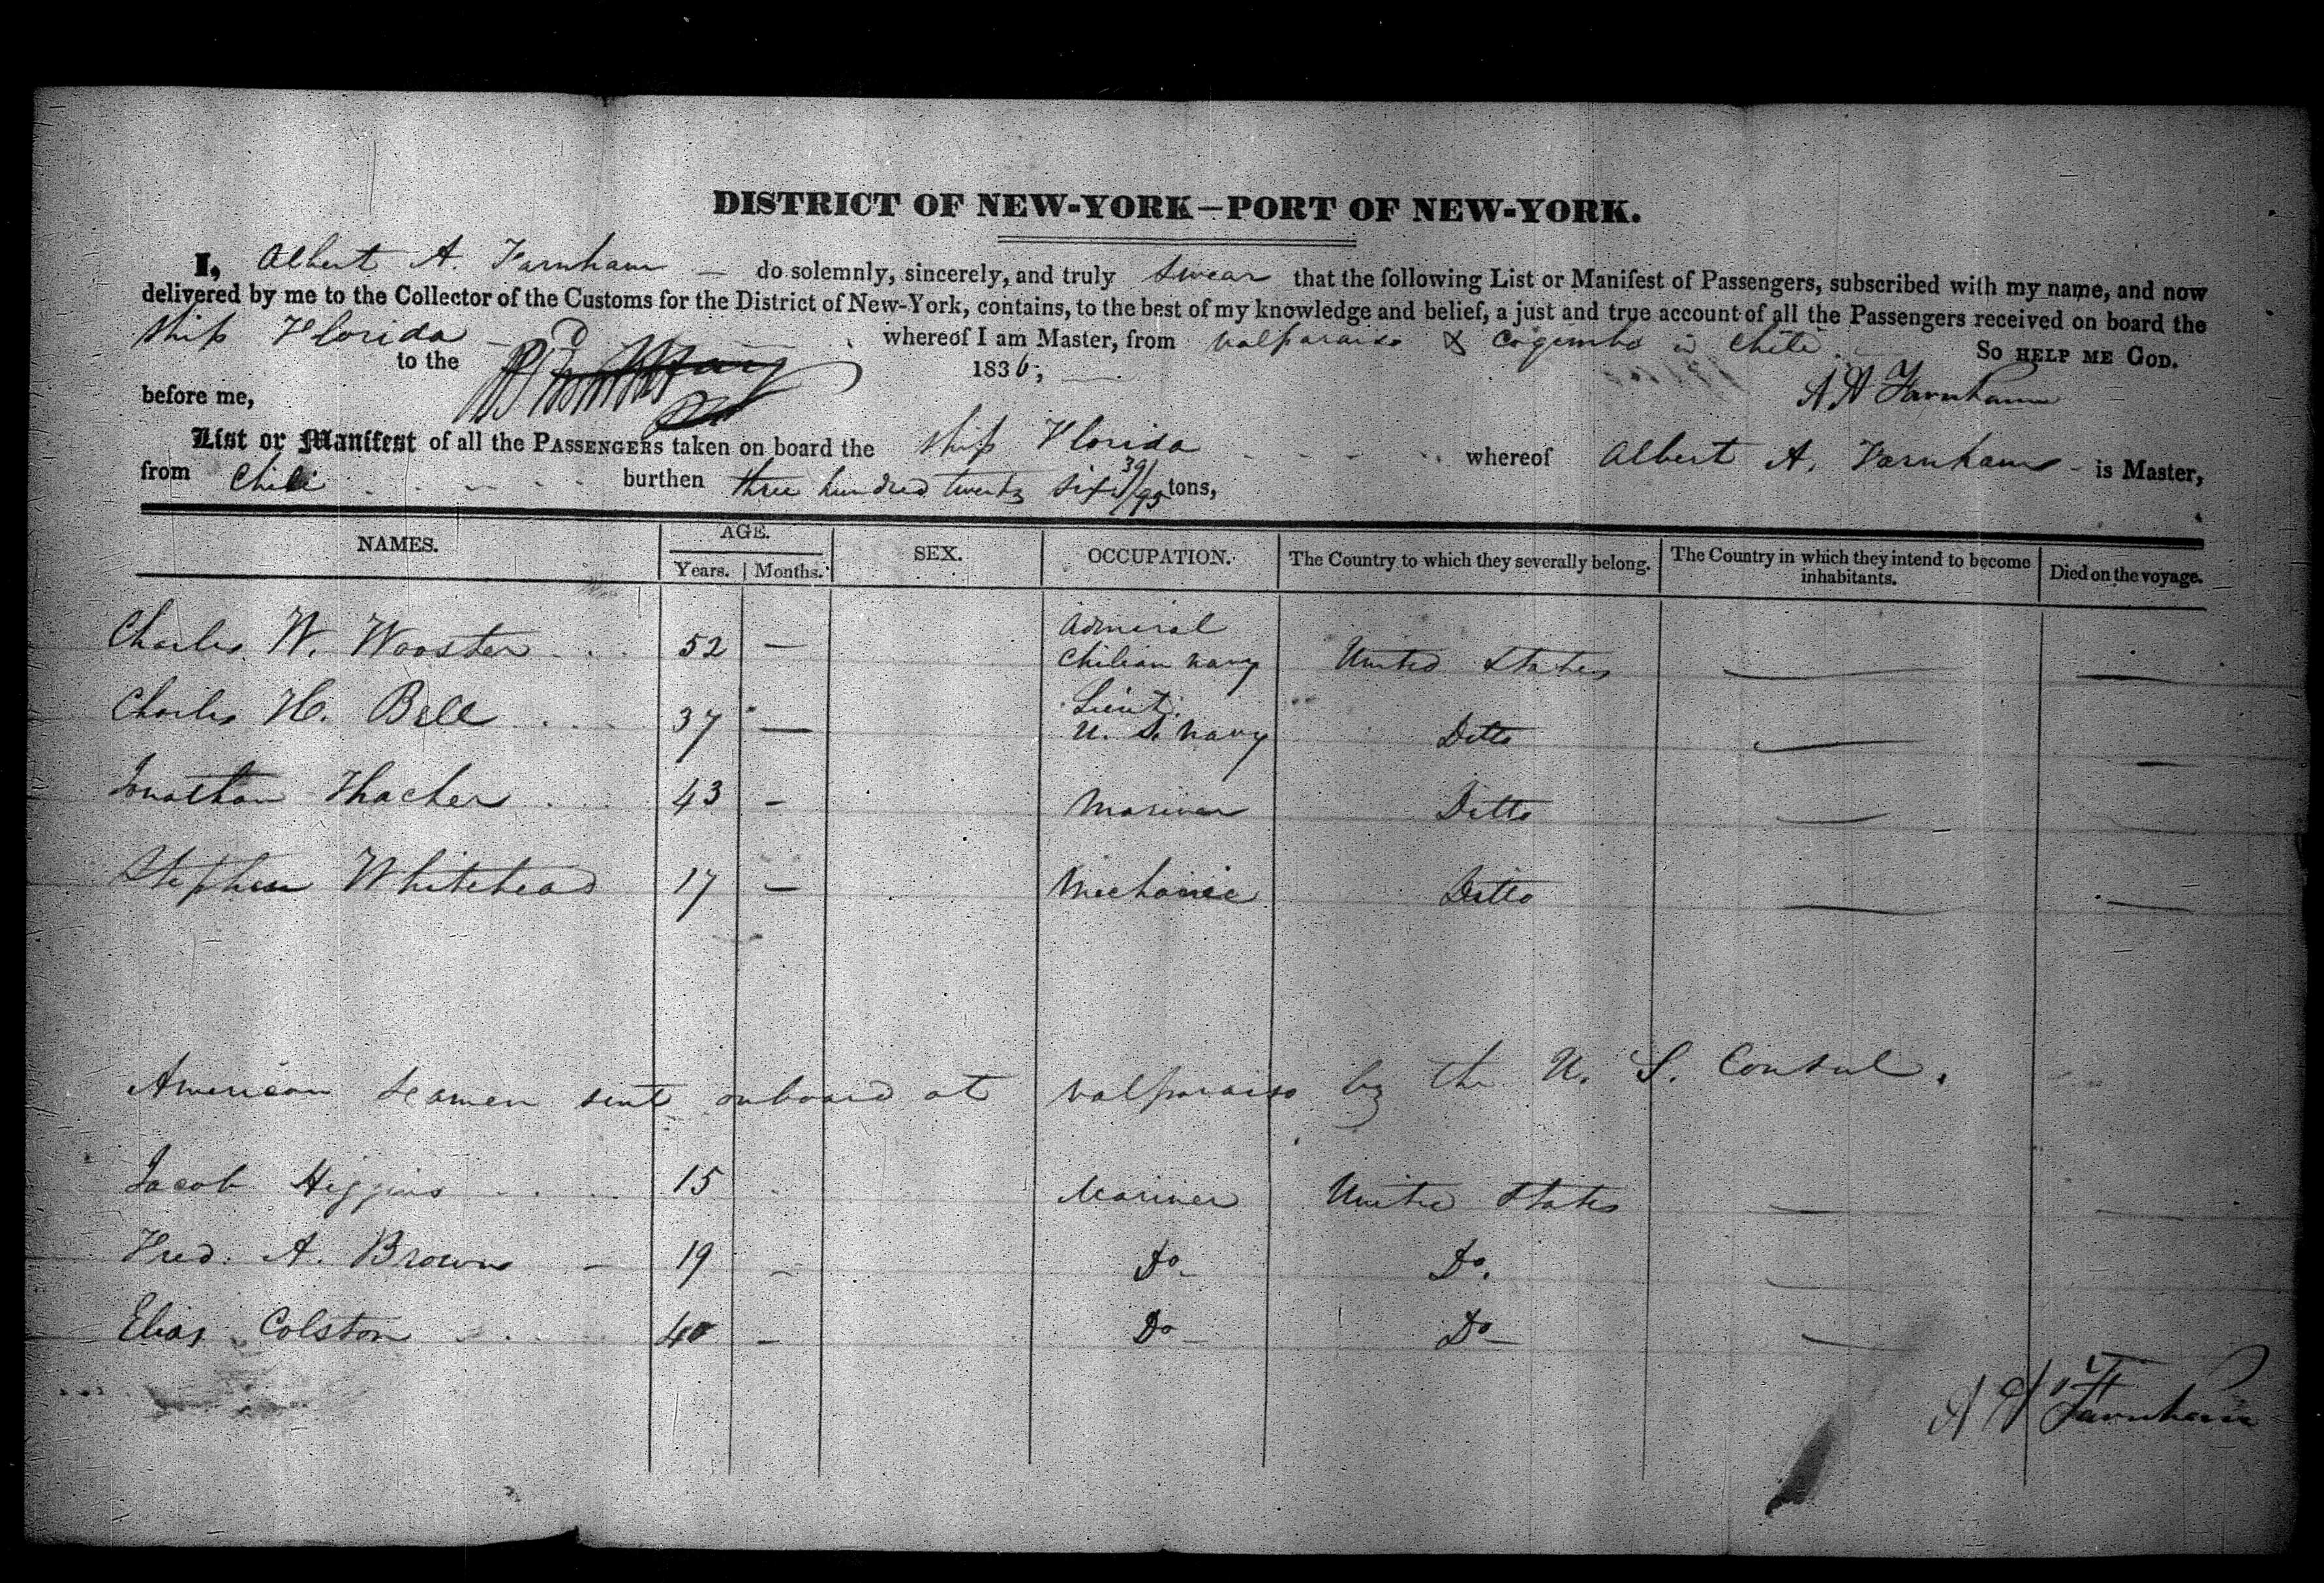 DISTRICT OF NEW-YORK—PORT OF NEW-YORK.
I, Albert A. Farnham — do solemnly, sincerely, and truly swear that the following List or Manifest of Passengers, subscribed with my name, and now
delivered by me to the Collector of the Customs for the District of New-York, contains, to the best of my knowledge and belief, a just and true account of all the Passengers received on board the
Ship Florida whereof I am Master, from Valparaiso & Coquimbo in Chili. So HELP ME GOD.
to the 1836,
before me, A A Farnham
List or Manifest of all the PASSENGERS taken on board the Ship Florida whereof Albert A. Farnham is Master,
from Chili burthen three hundred twenty six 39/95 tons,
NAMES. AGE. SEX. OCCUPATION. The Country to which they severally belong. The Country in which they intend to become inhabitants. Died on the voyage.
Years. Months.
Charles W. Wooster 52 — Admiral Chilian Navy United States — —
Charles H. Bell 37 — Lieut. U. S. Navy Ditto — —
Jonathan Thacher 43 — Mariner Ditto —
Stephen Whitehead 17 — Mechanic Ditto — —
American Seamen sent onboard at Valparaiso by the U. S. Consul.
Jacob Higgins 15 Mariner United States — —
Fred. A. Brown — 19 — Do — Do. —
Elias Colston 40 — Do — Do — —
A A Farnham